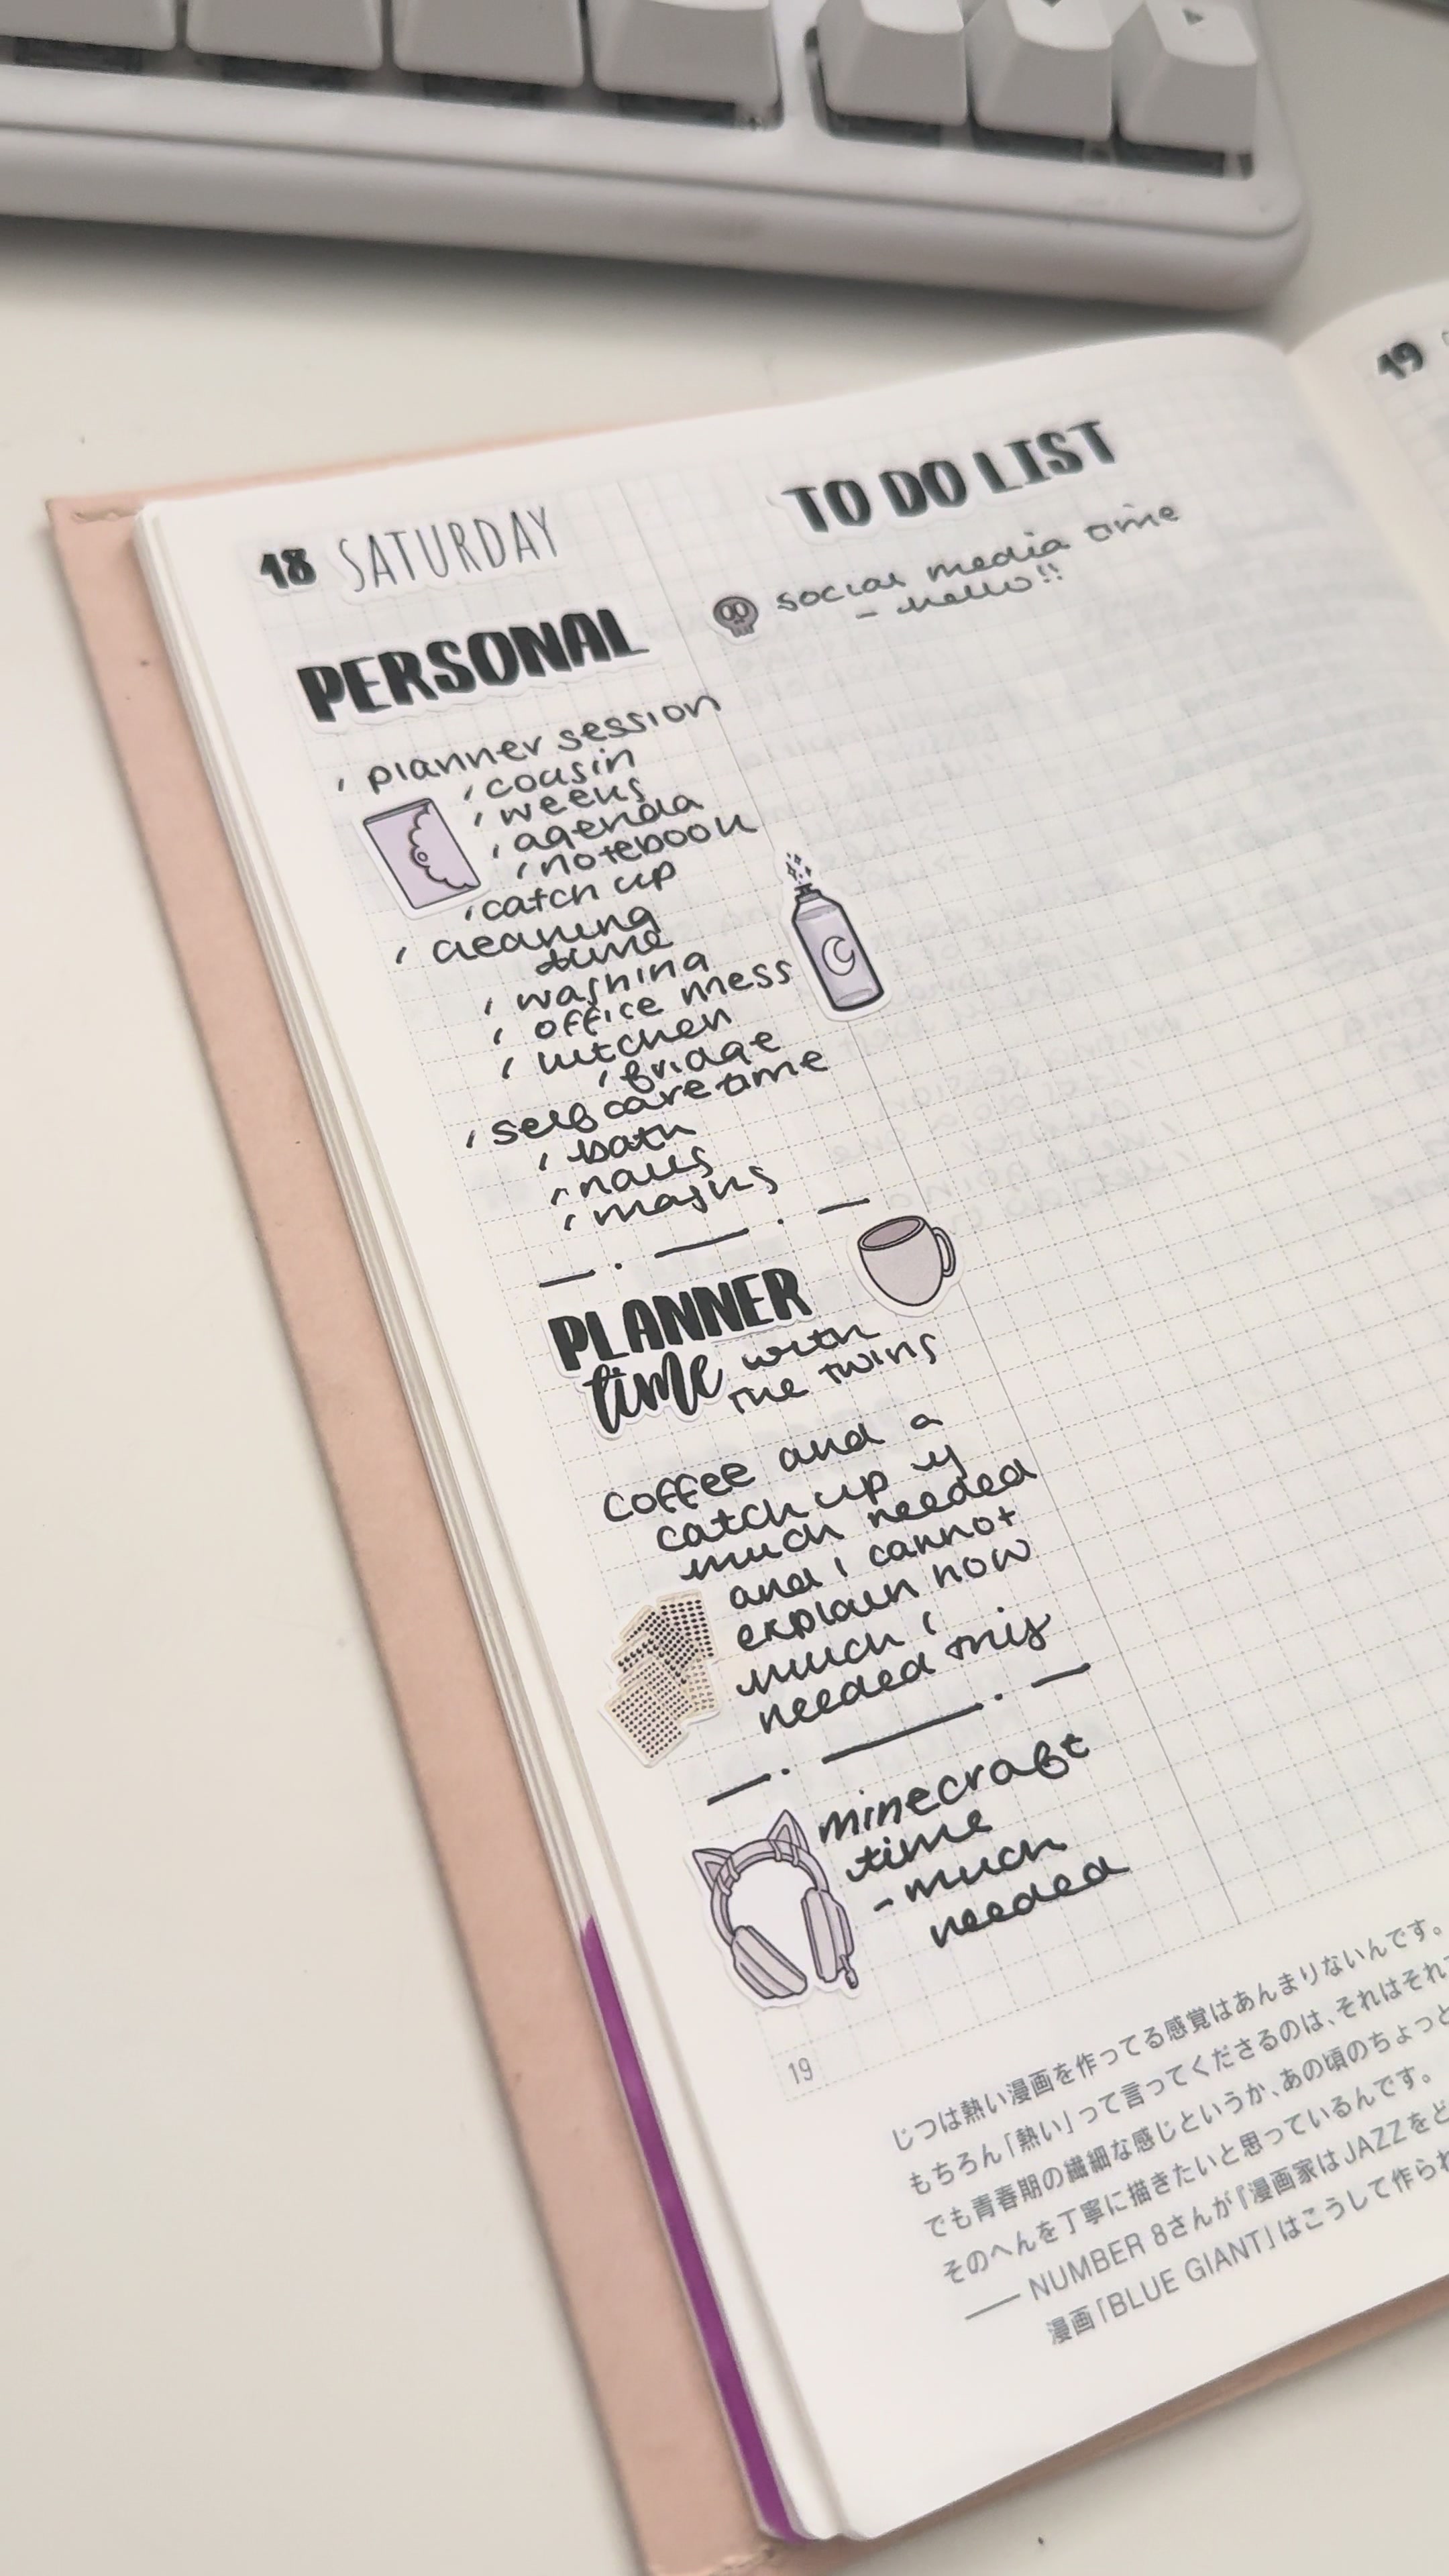 18 SATURDAY
PERSONAL
planner session
cousin
weeks
agenda
notebook
catch up
cleaning
time
washing
office mess
kitchen
fridge
self care time
bath
nails
masks
PLANNER
time with
the twins
Coffee and a
catch up is
much needed
and i cannot
explain how
much i
needed this
minecraft
time
- much
needed
19
TO DO LIST
social media time
- hello!!
じつは熱い漫画を作ってる感覚はあんまりないんです。
もちろん「熱い」って言ってくださるのは、それはそれ
でも青春期の繊細な感じというか、あの頃のちょっと
そのへんを丁寧に描きたいと思っているんです。
—— NUMBER 8さんが『漫画家はJAZZをど
漫画「BLUE GIANT」はこうして作られ
19